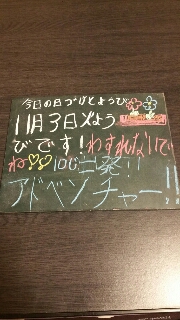 今日の日づけとようび
11月3日火よう
びです!わすれないで
ね♡♡10じ二発!!
アドベンチャー!!